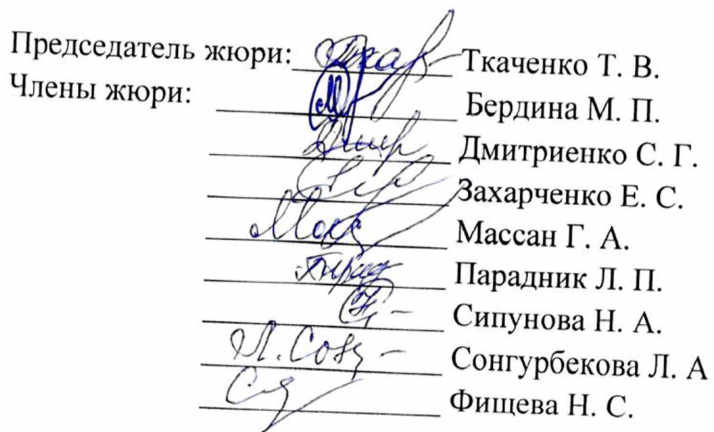 Председатель жюри: Ткаченко Т. В.
Члены жюри: Бердина М. П.
Дмитриенко С. Г.
Захарченко Е. С.
Массан Г. А.
Парадник Л. П.
Сипунова Н. А.
Сонгурбекова Л. А
Фищева Н. С.